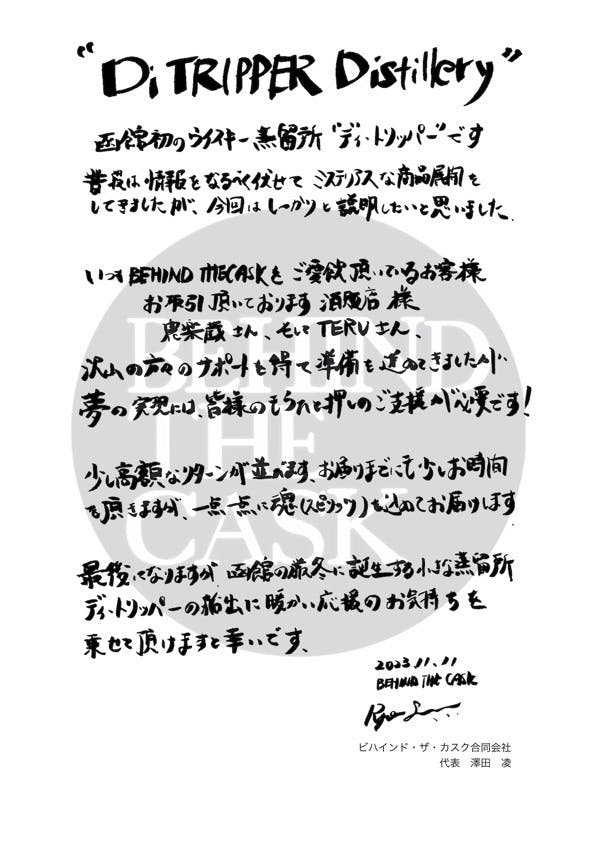 “Di TRIPPER Distillery”
函館初のウイスキー蒸留所“ディ・トリッパー”です
普段は情報をなるべく伏せて ミステリアスな商品展開を
してきましたが、今回はしっかりと説明したいと思いました.
いつもBEHIND THE CASKを ご愛飲頂いているお客様
お取引頂いております 酒販店 様
農楽蔵さん、そして TERUさん
沢山の方々のサポートを得て準備を進めてきましたが
夢の実現には、皆様のもうひと押しのご支援が必要です!
少し高額なリターンが並びます、お届けまでにも少しお時間
を頂きますが、一点一点に魂(スピリッツ)を込めてお届けします
最後になりますが 函館の厳冬に誕生する小さな蒸留所
ディ・トリッパーの船出に暖かい応援のお気持ちを
乗せて頂けますと幸いです、
2023.11.11
BEHIND THE CASK
ビハインド・ザ・カスク合同会社
代表 澤田 凌
BEHIND
THE
CASK